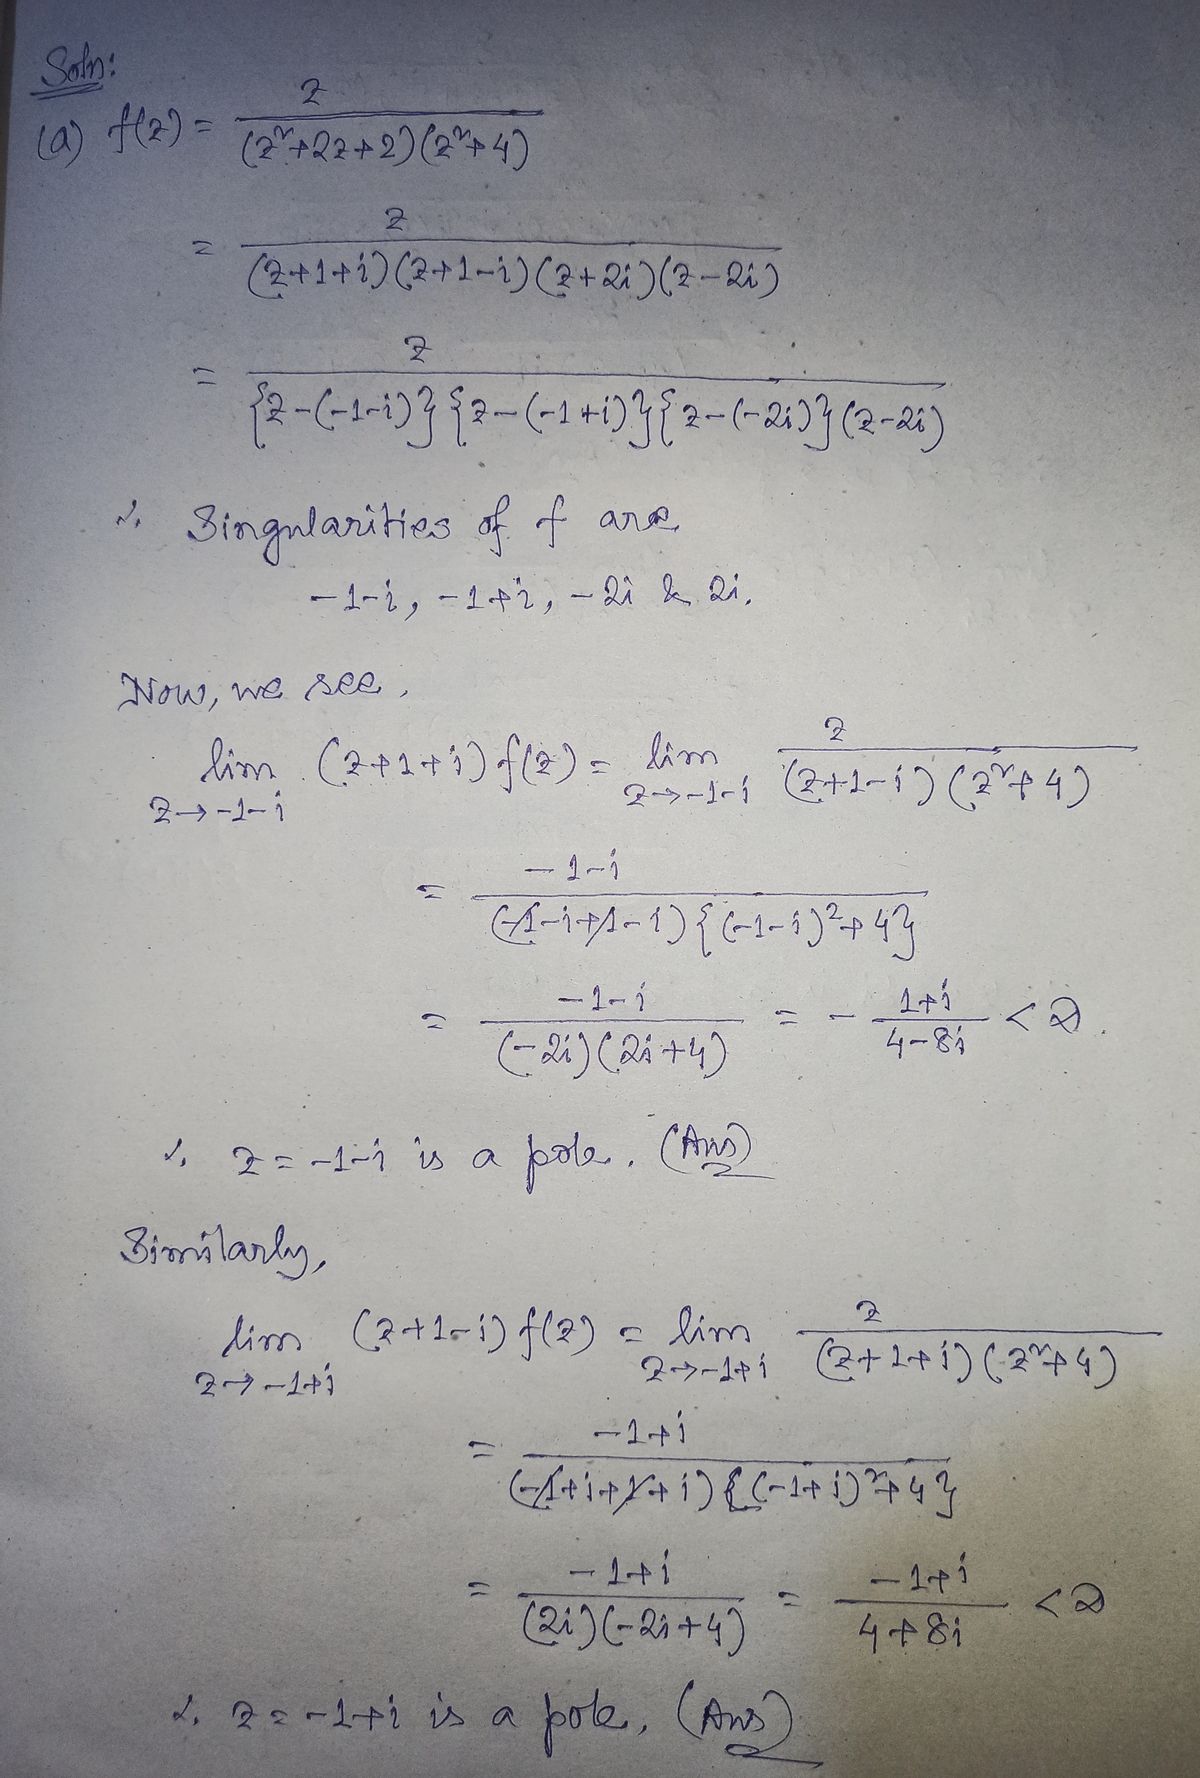 Soln:
(a) f(z) = z / (z²+2z+2)(z²+4)
= z / (z+1+i)(z+1-i)(z+2i)(z-2i)
= z / {z-(-1-i)}{z-(-1+i)}{z-(-2i)}(z-2i)
∴ Singularities of f are
-1-i, -1+i, -2i & 2i.
Now, we see,
lim z→-1-i (z+1+i) f(z) = lim z→-1-i z / (z+1-i)(z²+4)
= -1-i / (-1-i+1-i){(-1-i)²+4}
= -1-i / (-2i)(2i+4) = - 1+i / 4-8i < ∞.
∴ z = -1-i is a pole. (Ans)
Similarly,
lim z→-1+i (z+1-i) f(z) = lim z→-1+i z / (z+1+i)(z²+4)
= -1+i / (-1+i+1+i){(-1+i)²+4}
= -1+i / (2i)(-2i+4) = -1+i / 4+8i < ∞
∴ z = -1+i is a pole, (Ans)